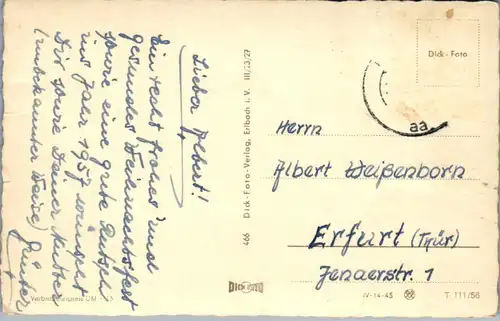 Lieber Albert!
Ein recht frohes und
gesundes Weihnachtsfest
sowie eine gute Rutsch
ins Jahr 1957 wünscht
Dir sowie Deiner Mutter
(unbekannter Weise) Günter
Verbraucherpreis DM
466 Dick-Foto-Verlag, Erlbach i. V. III/23/27
DICK FOTO
Dick-Foto
aa
Herrn
Albert Weißenborn
Erfurt (Thür)
Jenaerstr. 1
IV-14-45
T 111/56